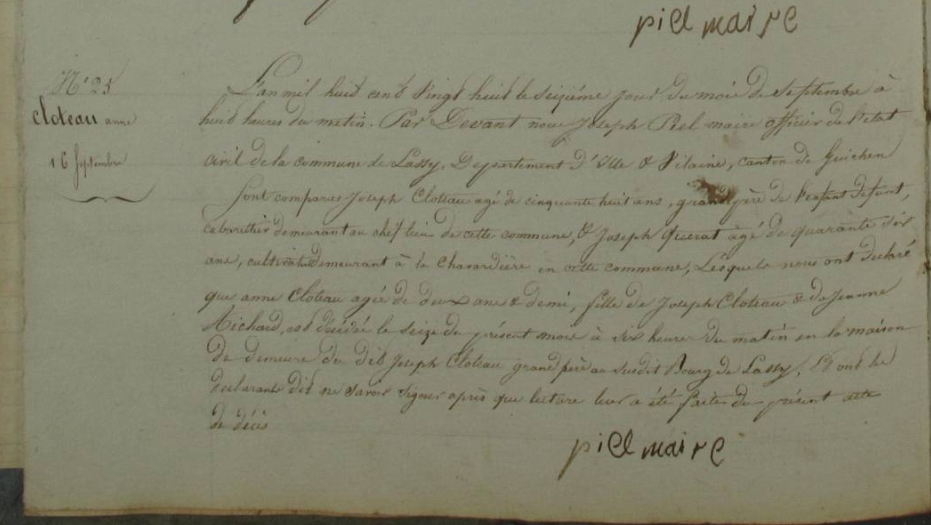 piel maire
N° 25
Cloteau anne
16 Septembre
L'an mil huit cent vingt huit le seizième jour du mois de Septembre à
huit heures du matin. Par Devant nous Joseph Piel maire officier de l'etat
civil de la commune de Lassy, Departement d'Ille & Vilaine, canton de Guichen
sont comparus Joseph Cloteau agé de cinquante huit ans, grand père de l'enfant defunt,
cabarettier demeurant au chef lieu de cette commune, & Joseph agé de quarante six
ans, cultivateur demeurant à la Chavardière en cette commune, Lesquels nous ont declaré
que anne Cloteau agée de deux ans & demi, fille de Joseph Cloteau & de Jeanne
Michard, est décédée le seize du présent mois à six heures du matin en la maison
de demeure du dit Joseph Cloteau grand père au susdit Bourg de Lassy, Et ont les
declarants dit ne savoir signer après que lecture leur a été faite du présent acte
de décès
piel maire